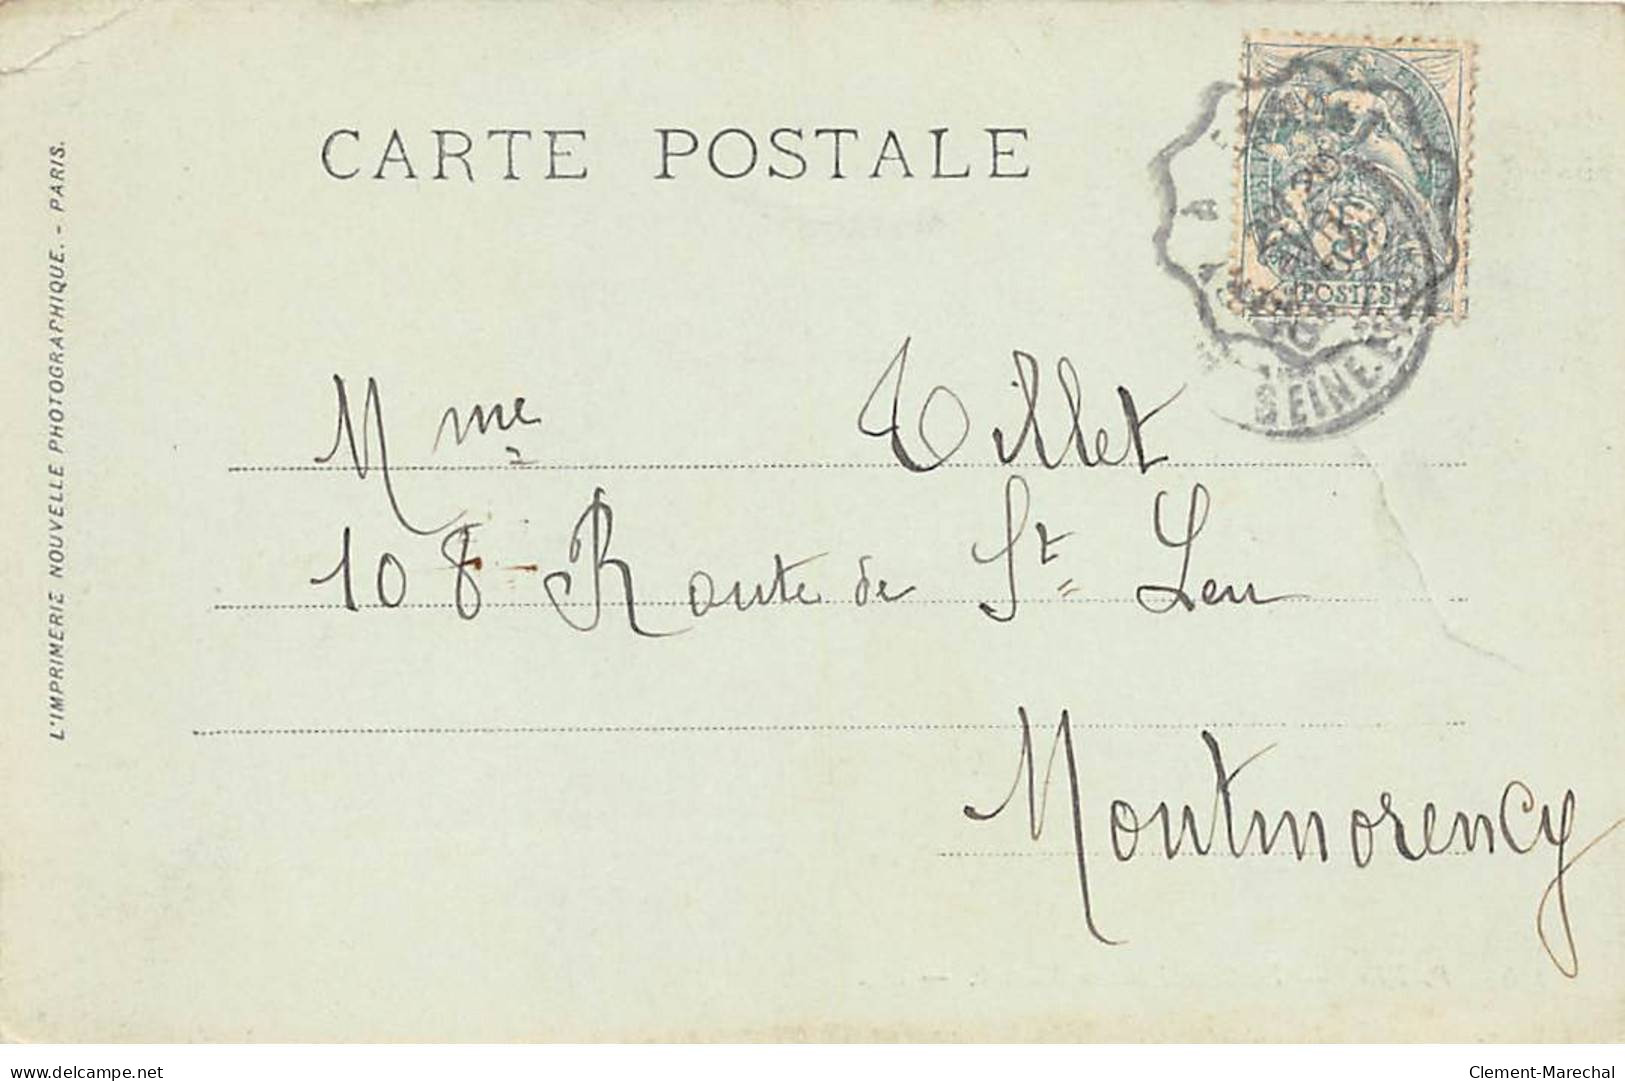 CARTE POSTALE
L'IMPRIMERIE NOUVELLE PHOTOGRAPHIQUE. - PARIS.
POSTES
SEINE
Mme Tillet
108 Route de St Leu
Montmorency
www.delcampe.net
Clement-Marechal